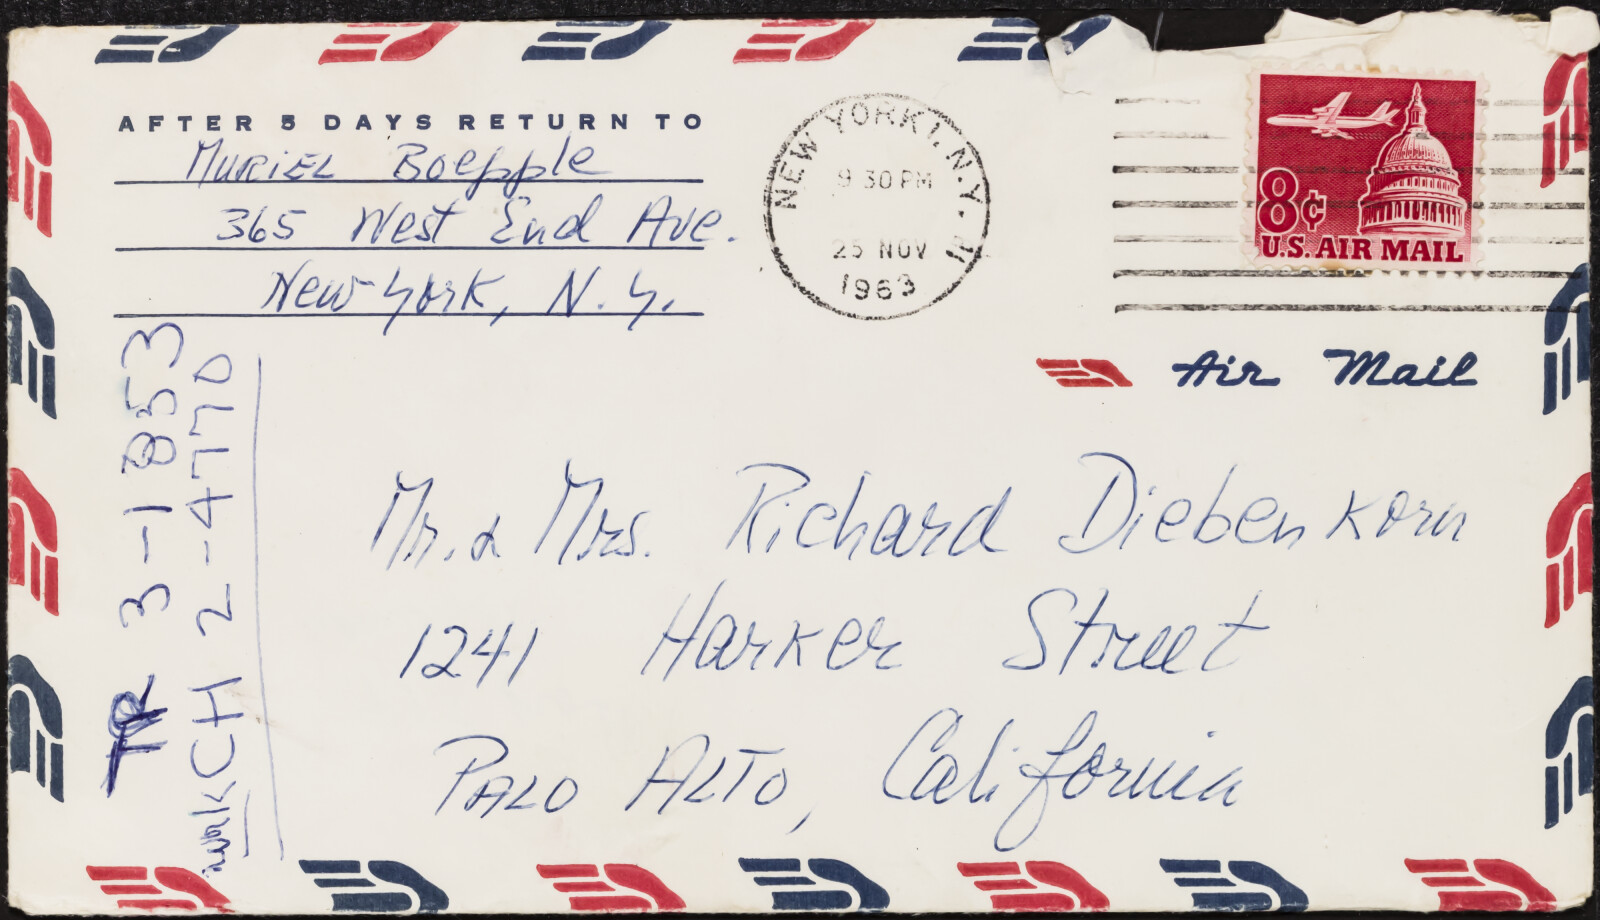 AFTER 5 DAYS RETURN TO
Muriel Boepple
365 West End Ave.
New York, N.Y.
NEW YORK 1, N.Y.
9 30 PM
25 NOV
1963
8¢
U.S. AIR MAIL
Air Mail
Mr. & Mrs. Richard Diebenkorn
1241 Harker Street
Palo Alto, California
TR 3-1853
work CH 2-4770